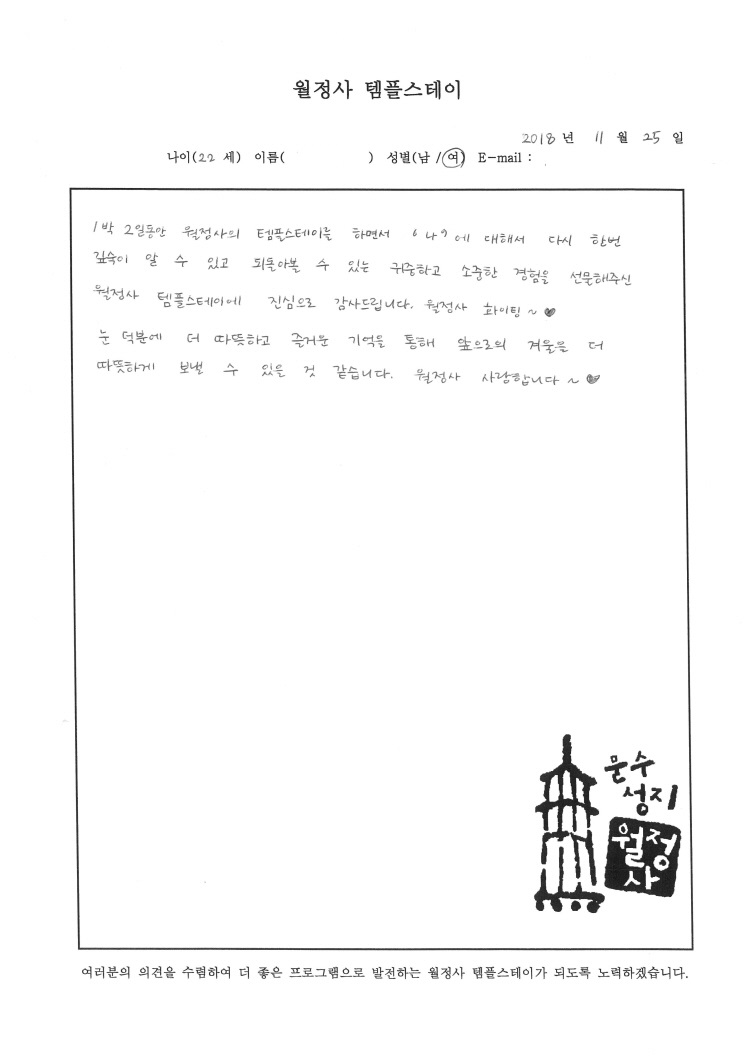 월정사 템플스테이
2018 년 11 월 25 일
나이(22 세) 이름( ) 성별(남 / 여) E-mail :
1박 2일동안 월정사의 템플스테이를 하면서 '나'에 대해서 다시 한번
깊숙이 알 수 있고 되돌아볼 수 있는 귀중하고 소중한 경험을 선물해주신
월정사 템플스테이에 진심으로 감사드립니다. 월정사 화이팅~♥
눈 덕분에 더 따뜻하고 즐거운 기억을 통해 앞으로의 겨울을 더
따뜻하게 보낼 수 있을 것 같습니다. 월정사 사랑합니다~♥
문수
성지
월정
사
여러분의 의견을 수렴하여 더 좋은 프로그램으로 발전하는 월정사 템플스테이가 되도록 노력하겠습니다.